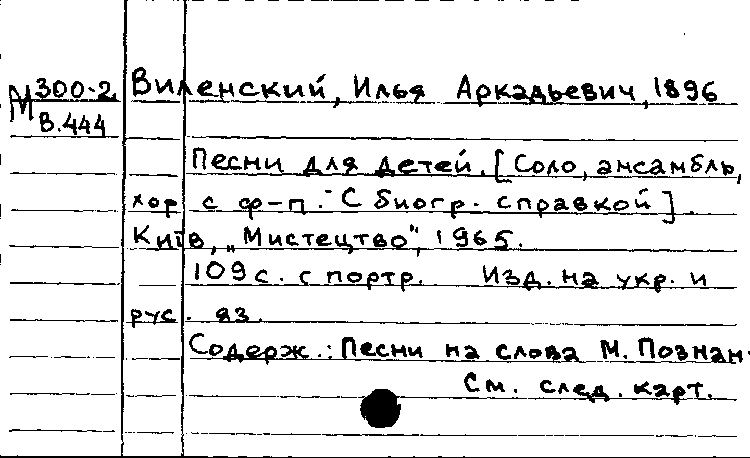 М 300-2 Виленский, Илья Аркадьевич, 1896
В.444
Песни для детей. [Соло, ансамбль,
хор с ф-п. С биогр. справкой].
Київ, „Мистецтво", 1965.
109 с. с портр. Изд. на укр. и
рус. яз.
Содерж.: Песни на слова М. Познан-
См. след. карт.